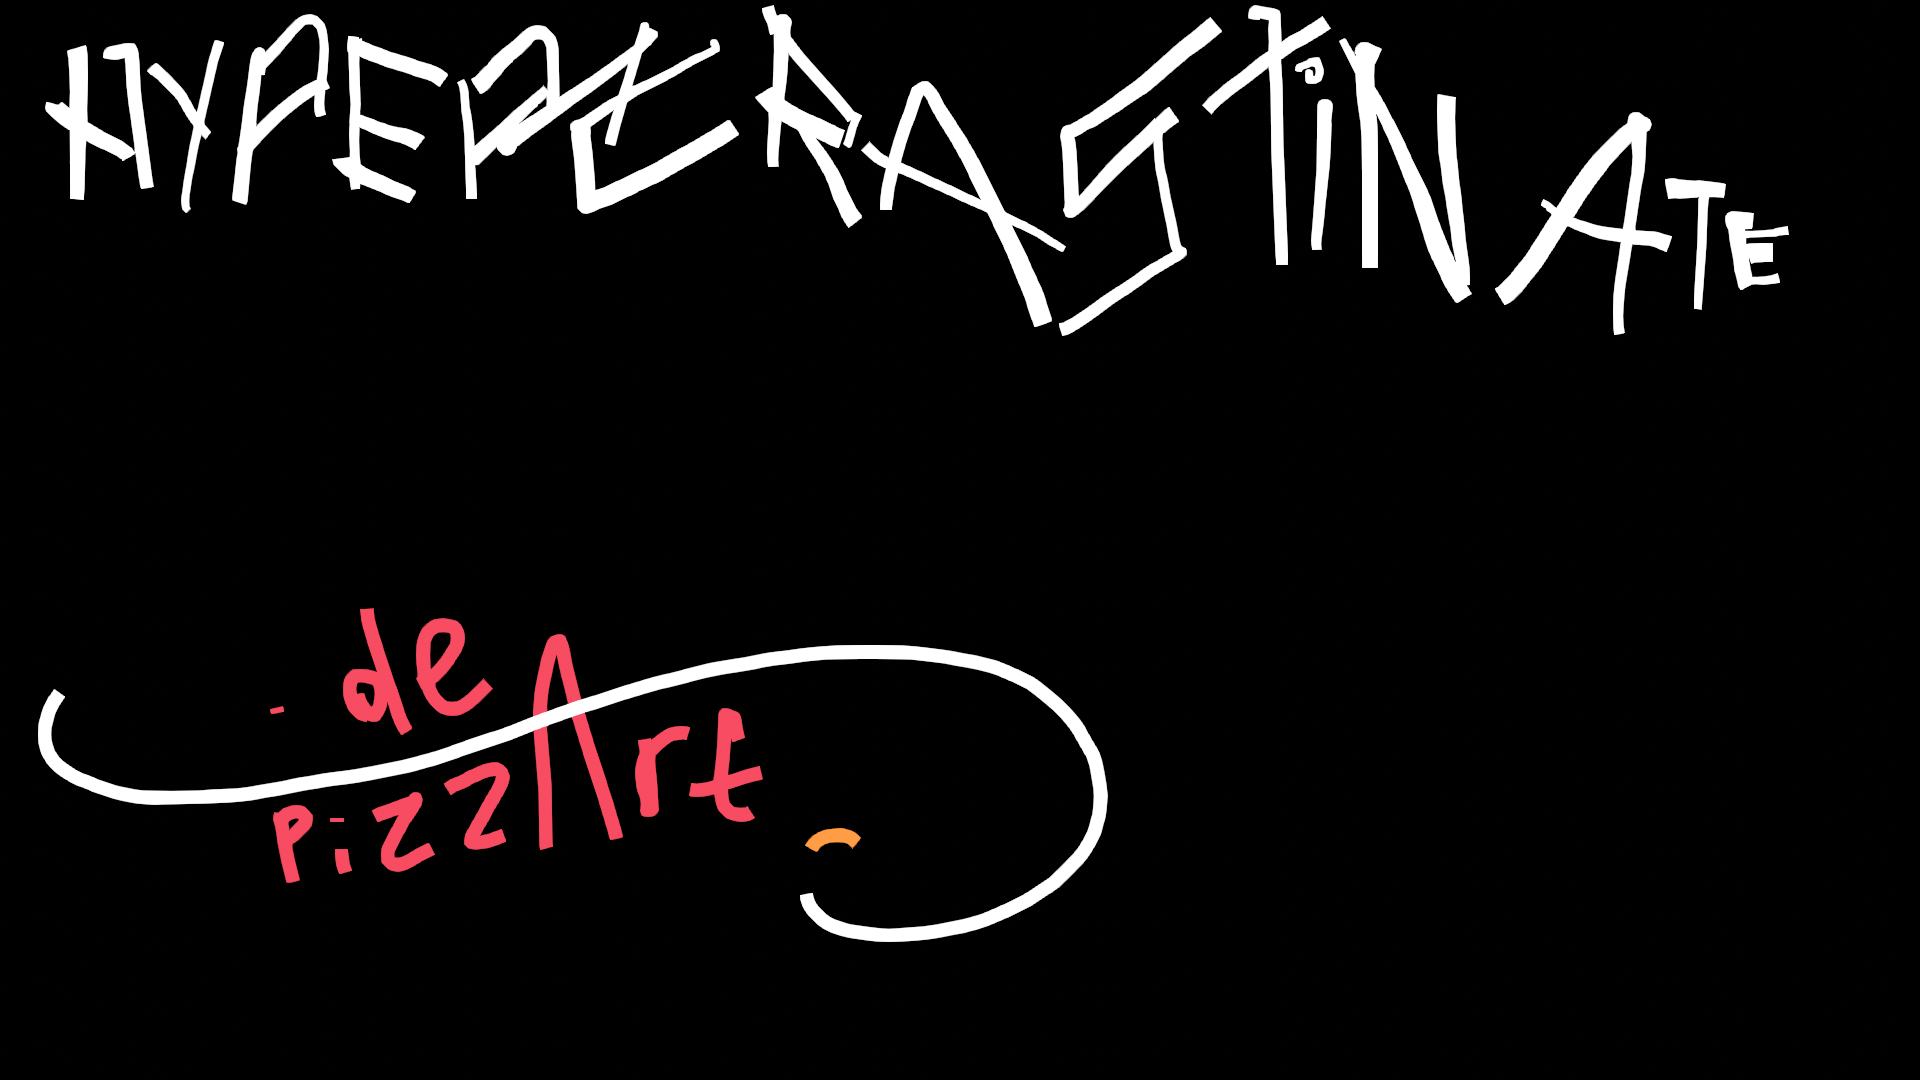 HYPEPERASTINATE
- de
PizzArt